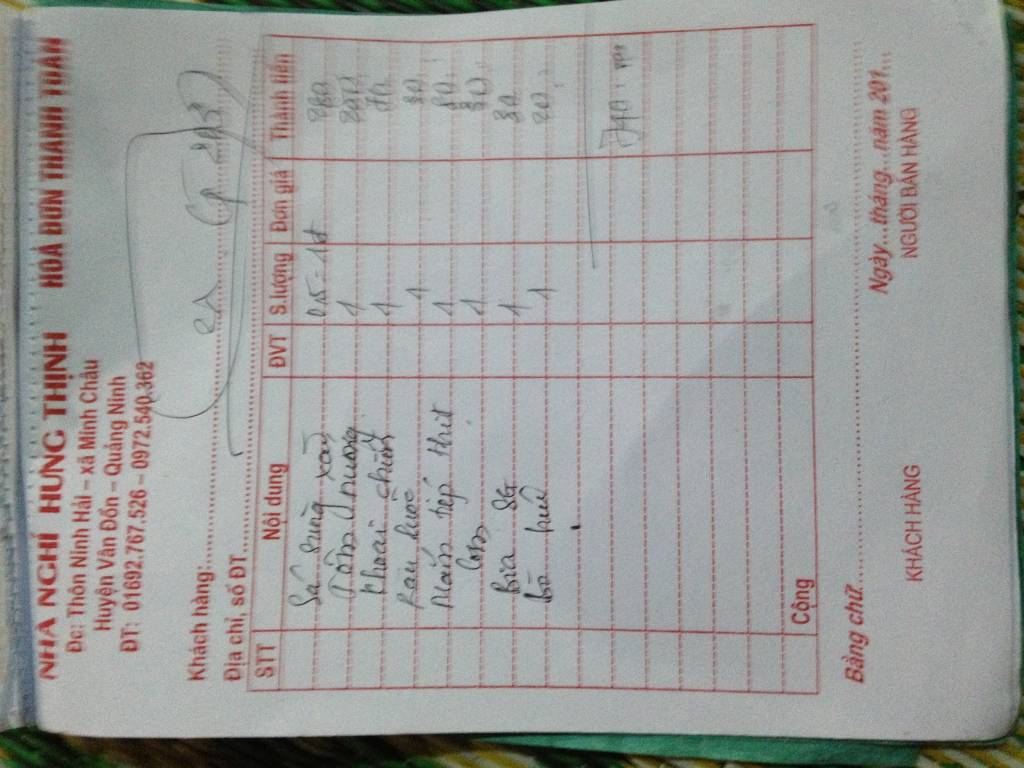 NHÀ NGHỈ HƯNG THỊNH HOÁ ĐƠN THANH TOÁN
Đc: Thôn Ninh Hải – xã Minh Châu
Huyện Vân Đồn – Quảng Ninh
ĐT: 01692.767.526 – 0972.540.362
Khách hàng:
Địa chỉ, số ĐT
STT Nội dung ĐVT S.lượng Đơn giá Thành tiền
Sá sùng xào 280
Tôm nướng 1 200
Khoai chiên 1
Rau luộc 1 30
Mắm tép thịt 1 80
Cơm 1 30
Bia SG 1 30
1 20
Cộng
Bằng chữ
Ngày...tháng...năm 201...
KHÁCH HÀNG NGƯỜI BÁN HÀNG